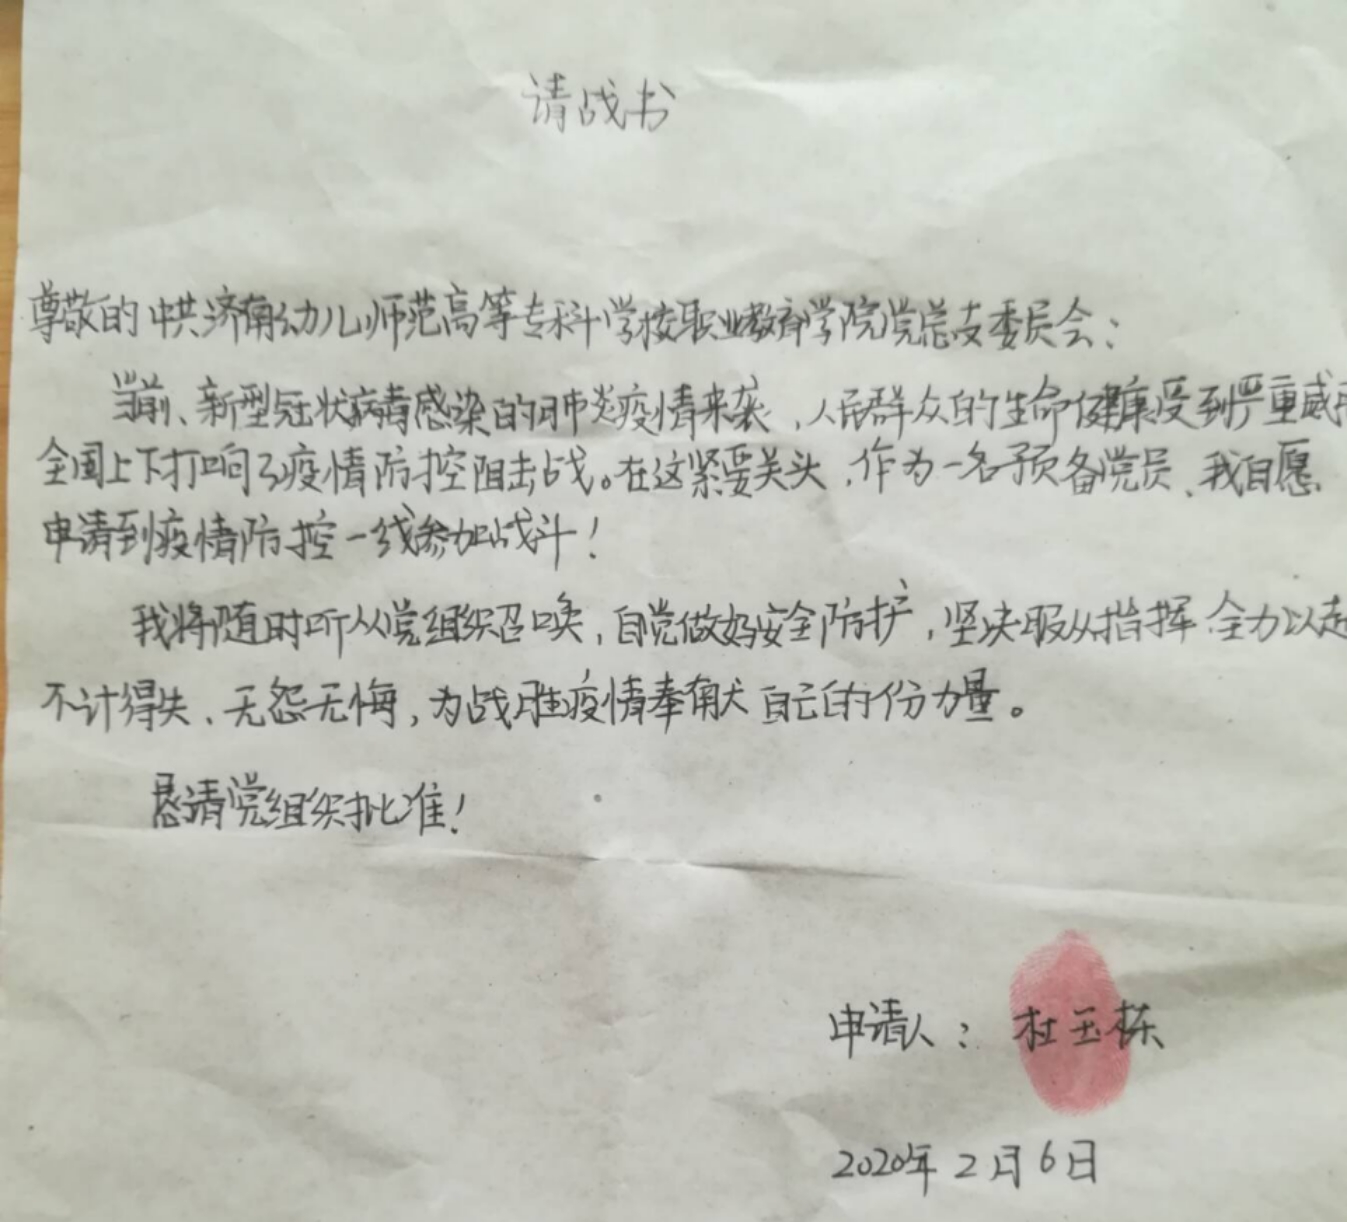 请战书
尊敬的中共济南幼儿师范高等专科学校职业教育学院党总支委员会：
当前、新型冠状病毒感染的肺炎疫情来袭，人民群众的生命健康受到严重威
全国上下打响了疫情防控阻击战。在这紧要关头，作为一名预备党员、我自愿
申请到疫情防控一线参加战斗！
我将随时听从党组织召唤，自觉做好安全防护，坚决服从指挥 全力以赴
不计得失、无怨无悔，为战胜疫情奉献自己的份力量。
恳请党组织批准！
申请人：杜玉栋
2020年2月6日